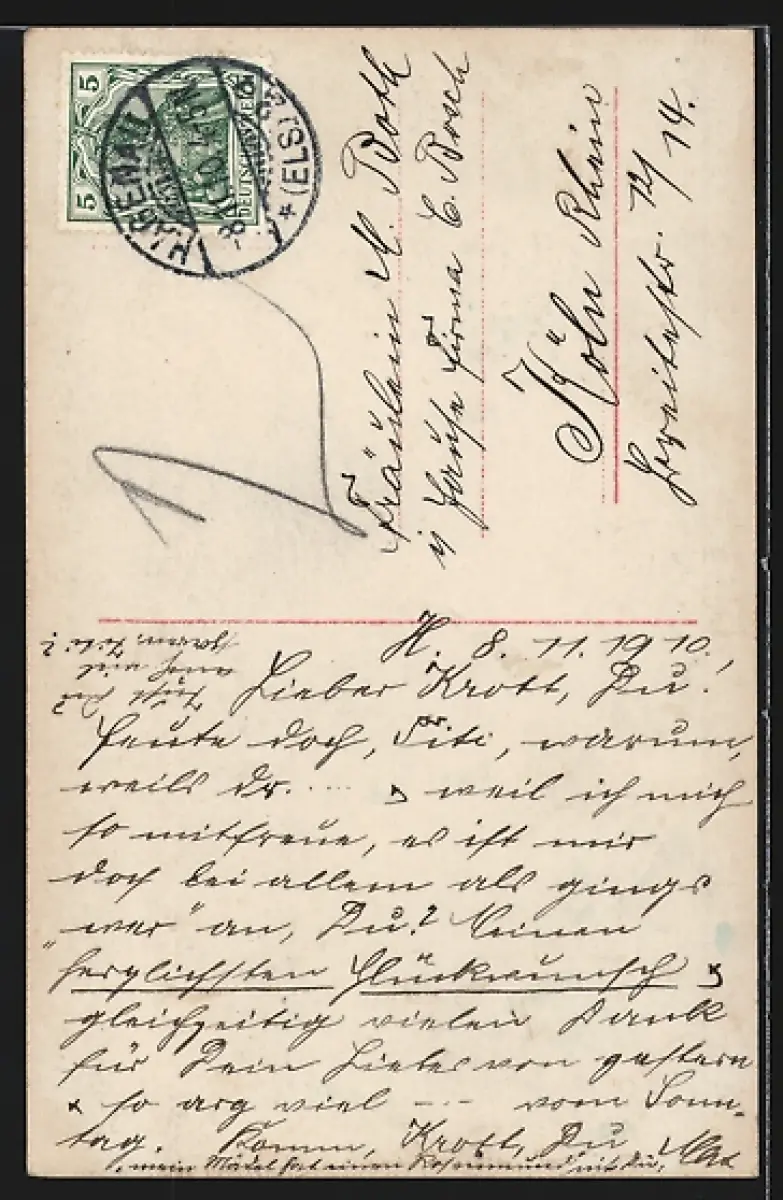 5 5
DEUTSCHES REICH
HAGENAU
* (ELS)
8.11.10
Fräulein M. Roth
i/ Hause Firma C. Bosch
Köln Rhein
Breitestr. 12/14.
H. 8. 11. 1910.
Lieber Krott, Du!
heute doch, warum,
weils Dr. .... weil ich mich
so mitfreue, es ist mir
doch bei allem als gings
"wer" an, Du? Meinen
herzlichsten Glückwunsch &
gleichzeitig vielen Dank
für Dein Liebes von gestern
& so arg viel --- vom Sonn-
tag. Komm, Krott, Du
"mein Mädel hat einen Rosenmund" mit Du,